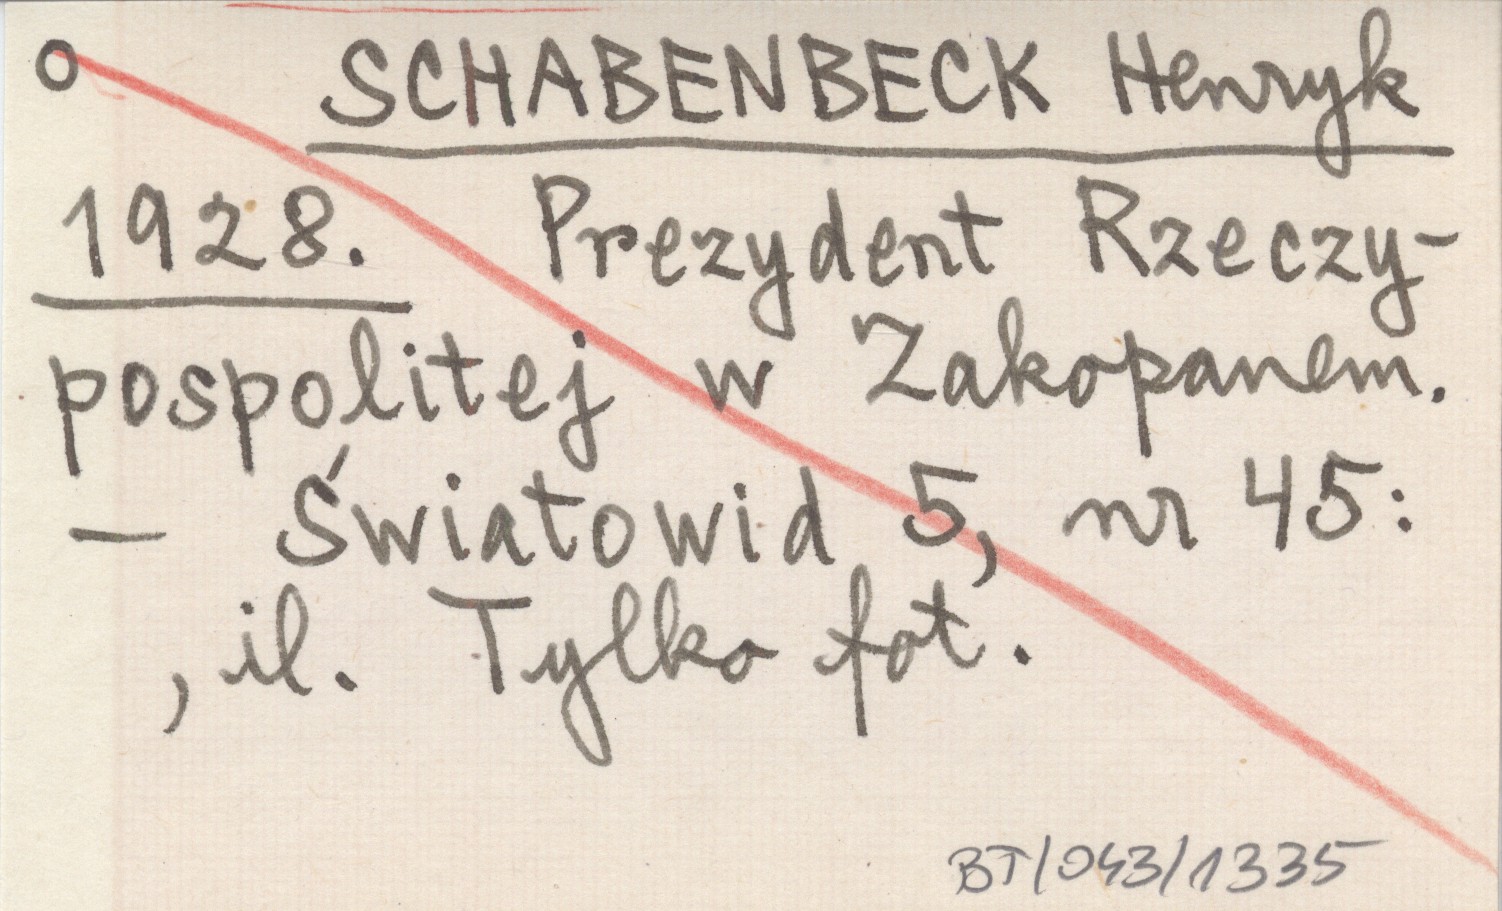 o SCHABENBECK Henryk
1928. Prezydent Rzeczy-
pospolitej w Zakopanem.
— Światowid 5, nr 45:
, il. Tylko fot.
BT/043/1335